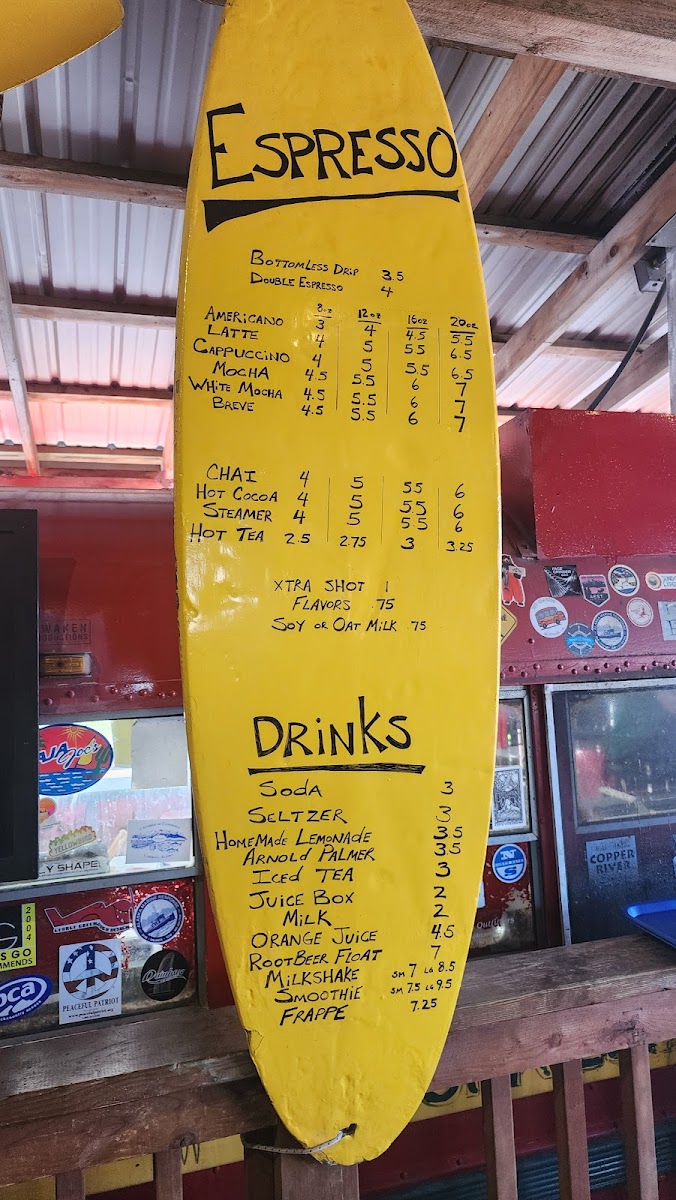 ESPRESSO
BOTTOMLESS DRIP 3.5
DOUBLE ESPRESSO 4
8oz 12oz 16oz 20oz
AMERICANO 3 4 4.5 5.5
LATTE 4 5 5.5 6.5
CAPPUCCINO 4 5 5.5 6.5
MOCHA 4.5 5.5 6 7
WHITE MOCHA 4.5 5.5 6 7
BREVE 4.5 5.5 6 7
CHAI 4 5 5.5 6
HOT COCOA 4 5 5.5 6
STEAMER 4 5 5.5 6
HOT TEA 2.5 2.75 3 3.25
XTRA SHOT 1
FLAVORS .75
SOY OR OAT MILK .75
DRINKS
SODA 3
SELTZER 3
HOMEMADE LEMONADE 3.5
ARNOLD PALMER 3.5
ICED TEA 3
JUICE BOX 2
MILK 2
ORANGE JUICE 4.5
ROOTBEER FLOAT 7
MILKSHAKE SM 7 LG 8.5
SMOOTHIE SM 7.5 LG 9.5
FRAPPE 7.25
Joe's
Y SHAPE
2004
GO
MMENDS
PEACEFUL PATRIOT
COPPER
RIVER
N
S